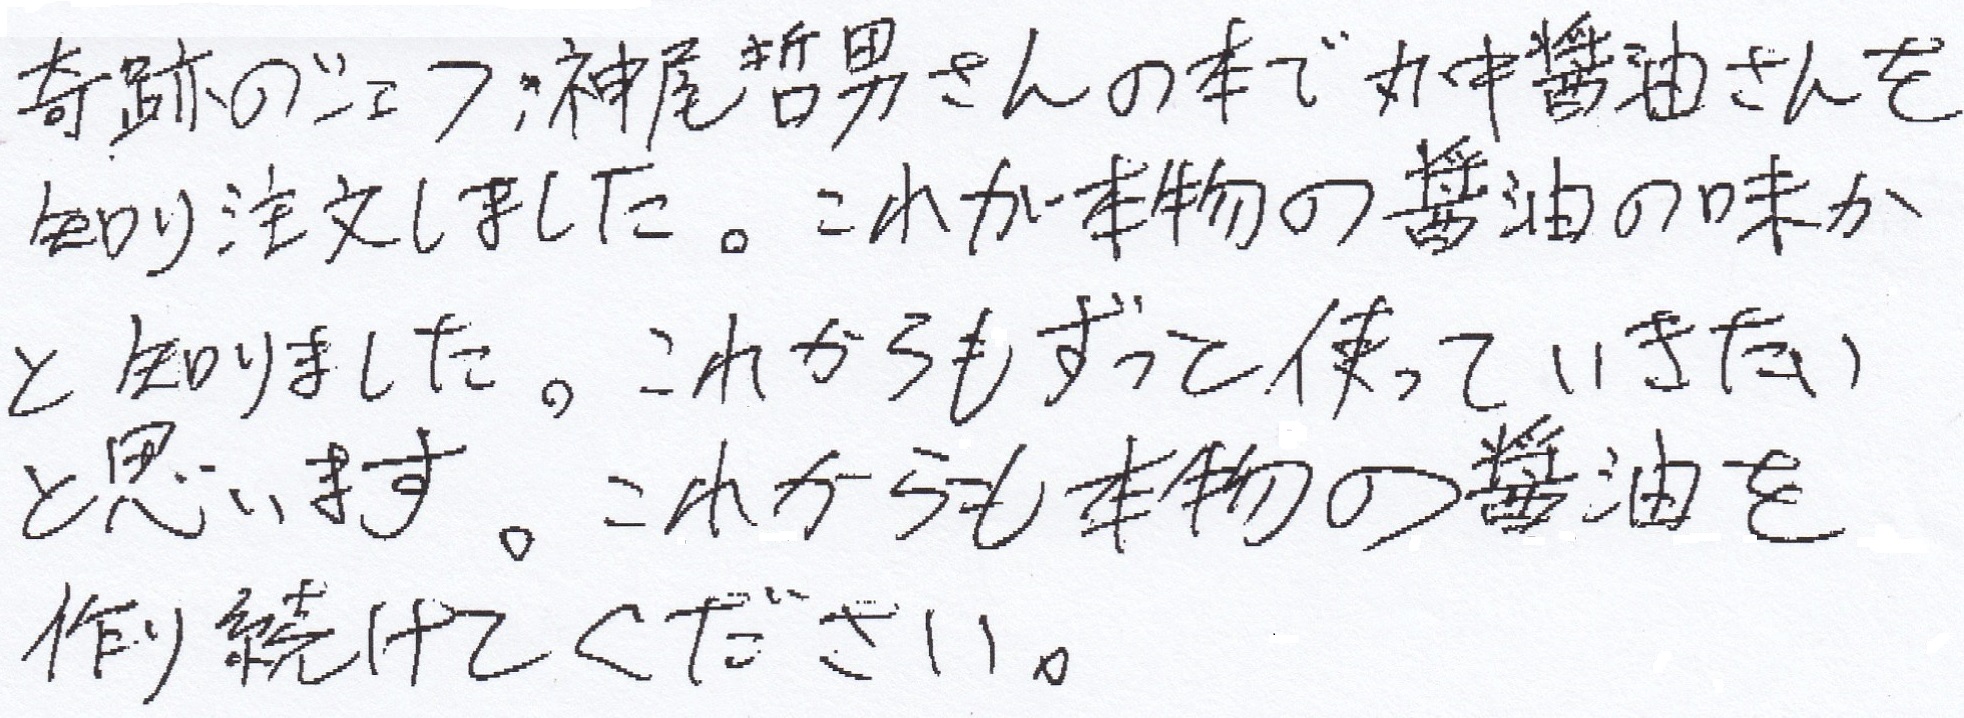 奇跡のシェフ、神尾哲男さんの本で丸中醤油さんを
知り注文しました。これが本物の醤油の味か
と知りました。これからもずっと使っていきたい
と思います。これからも本物の醤油を
作り続けてください。